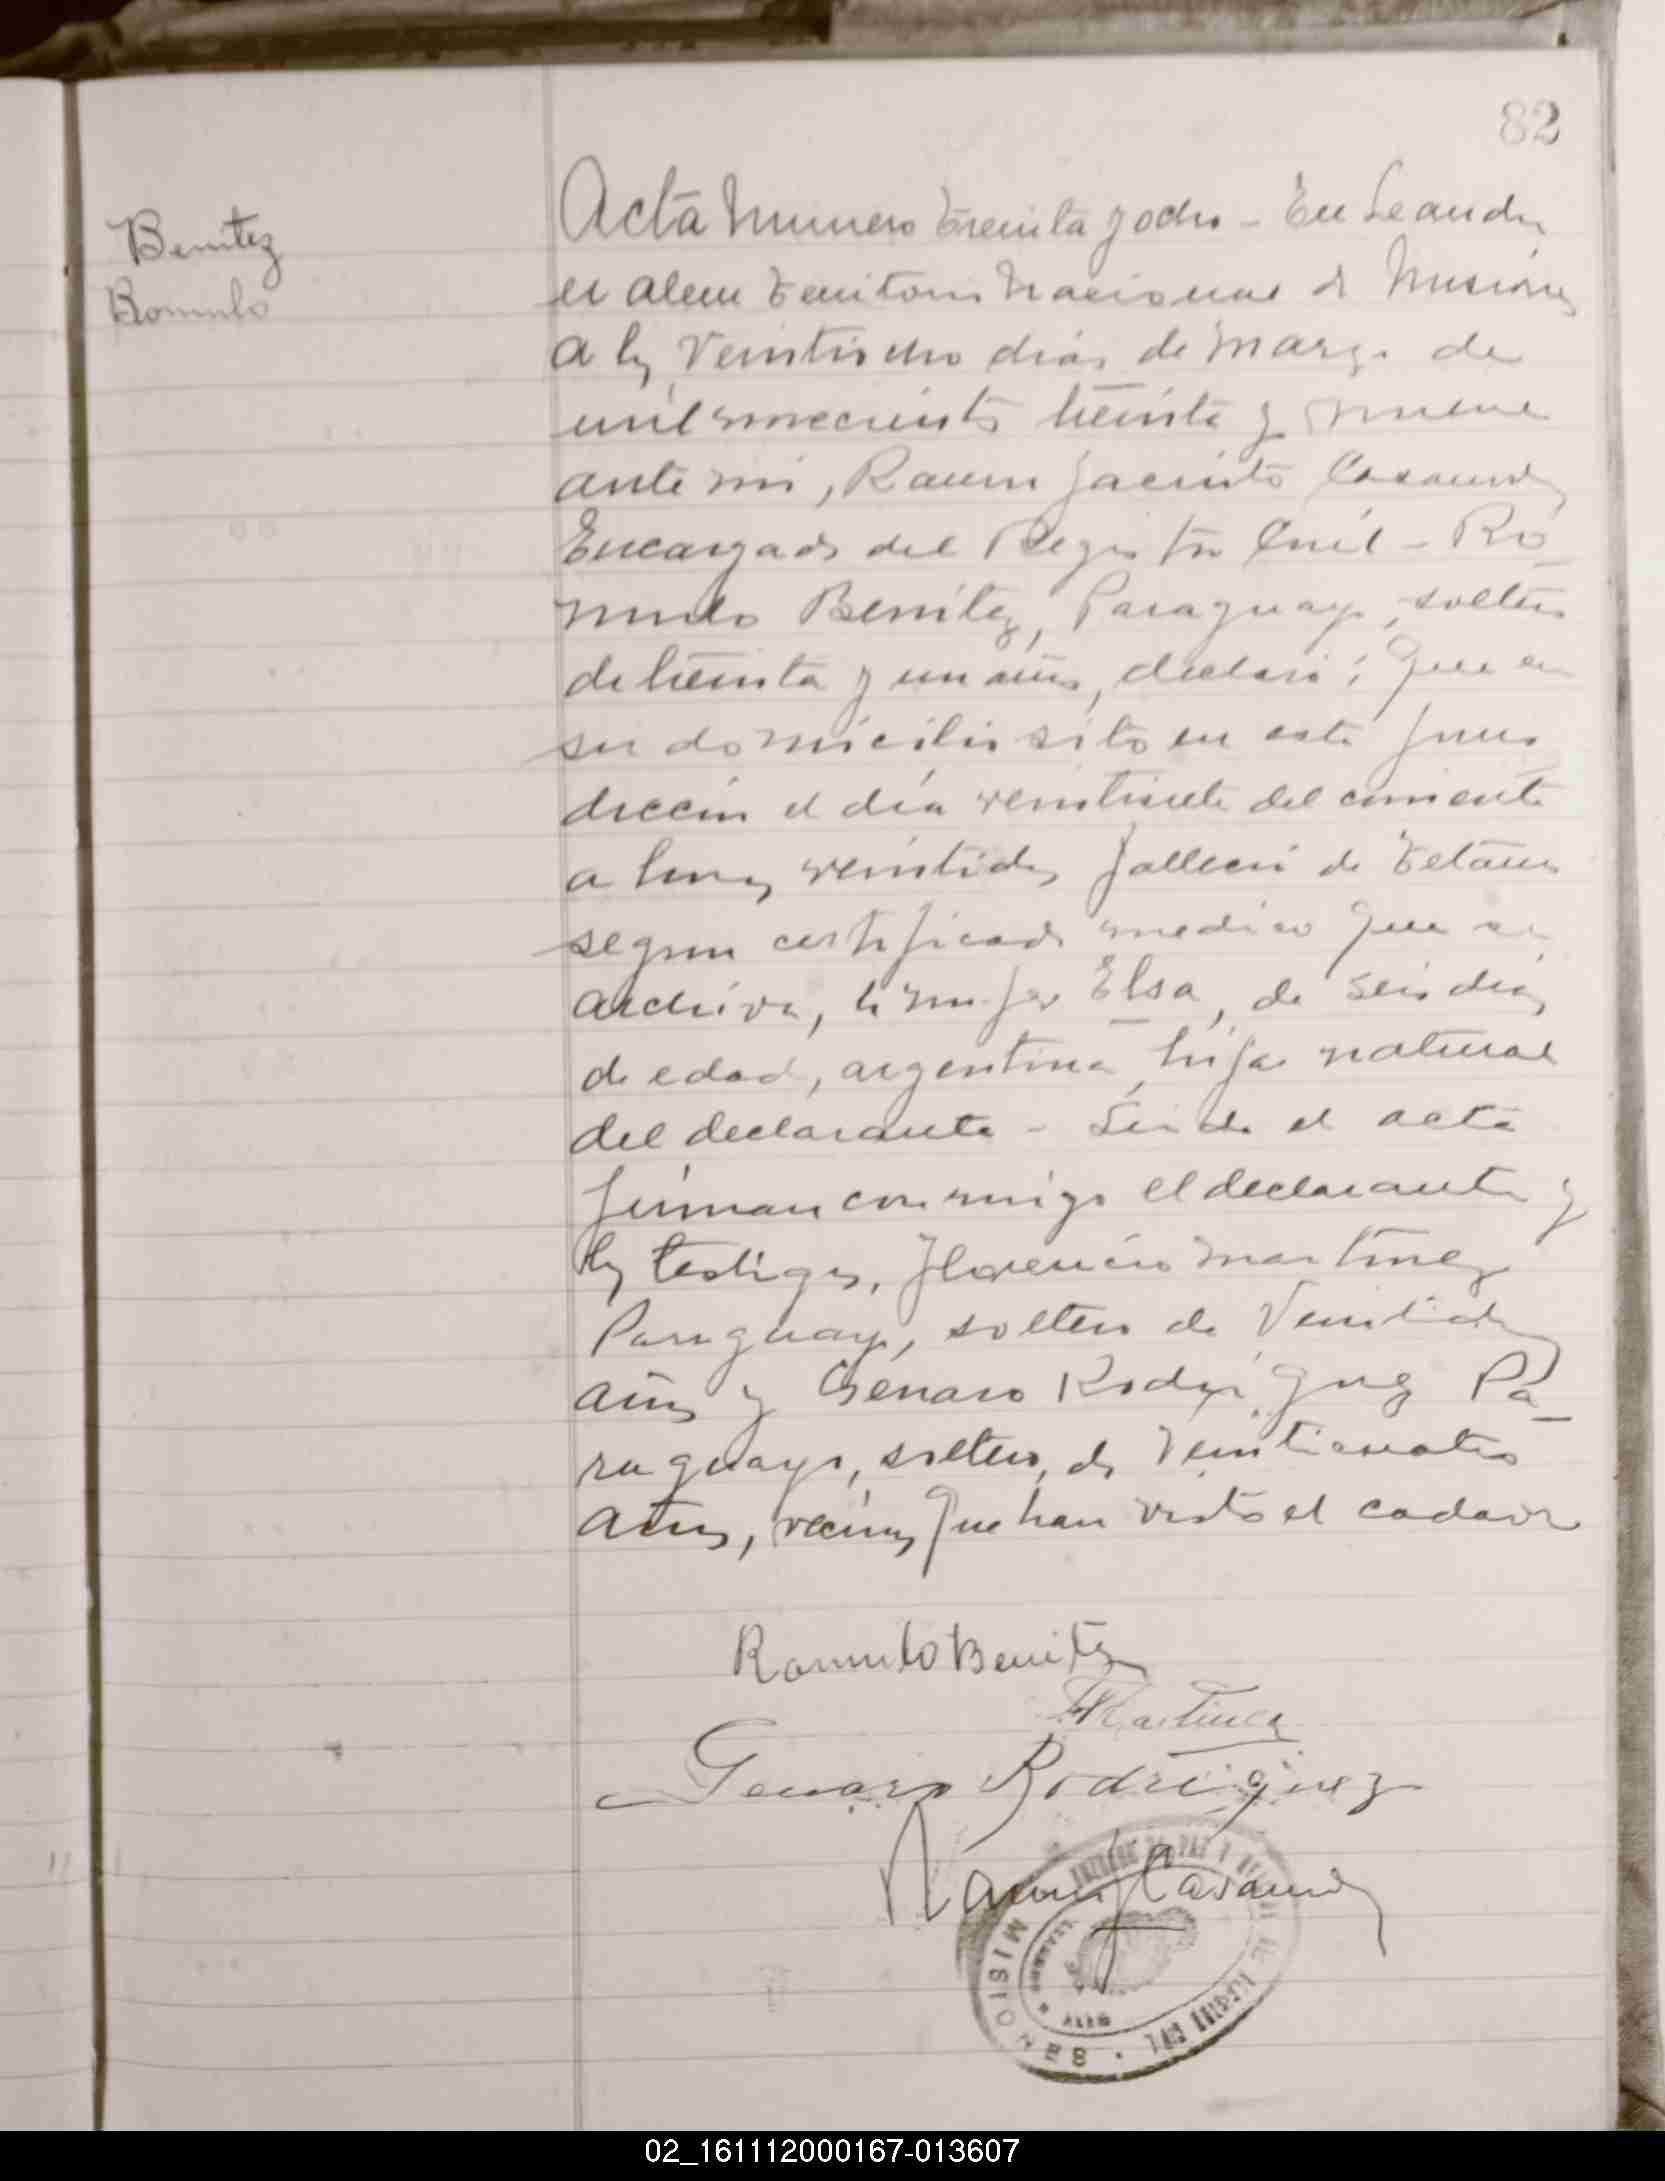 82
Benitez
Romulo
Acta Numero Treinta y ocho - En Leandro
n Alem Territorio Nacional de Misiones
a los Veintiocho dias de Marzo de
mil novecientos treinta y nueve
ante mi, Ramon Jacinto Casando
Encargado del Registro Civil - Ro
mulo Benitez, Paraguayo, soltero
de treinta y un años, declaró; Que en
su domicilio sito en esta juris
dicción el día veintisiete del corriente
a horas veintidos falleció de Tetano
segun certificado medico que se
archiva, la mujer Elsa, de seis dias
de edad, argentina, hija natural
del declarante - Leida el acta
firman conmigo el declarante y
los testigos, Florencio Martinez
Paraguayo, soltero de Veintidos
años y Genaro Rodriguez Pa_
raguayo, soltero, de Veinticuatro
años, vecinos que han visto el cadaver
Romulo Benitez
F Martinez
Genaro Rodriguez
Ramon J Casando
JUZGADO DE PAZ Y OFICINA DE REGISTRO CIVIL
MISIONES
LEANDRO N. ALEM
02_161112000167-013607